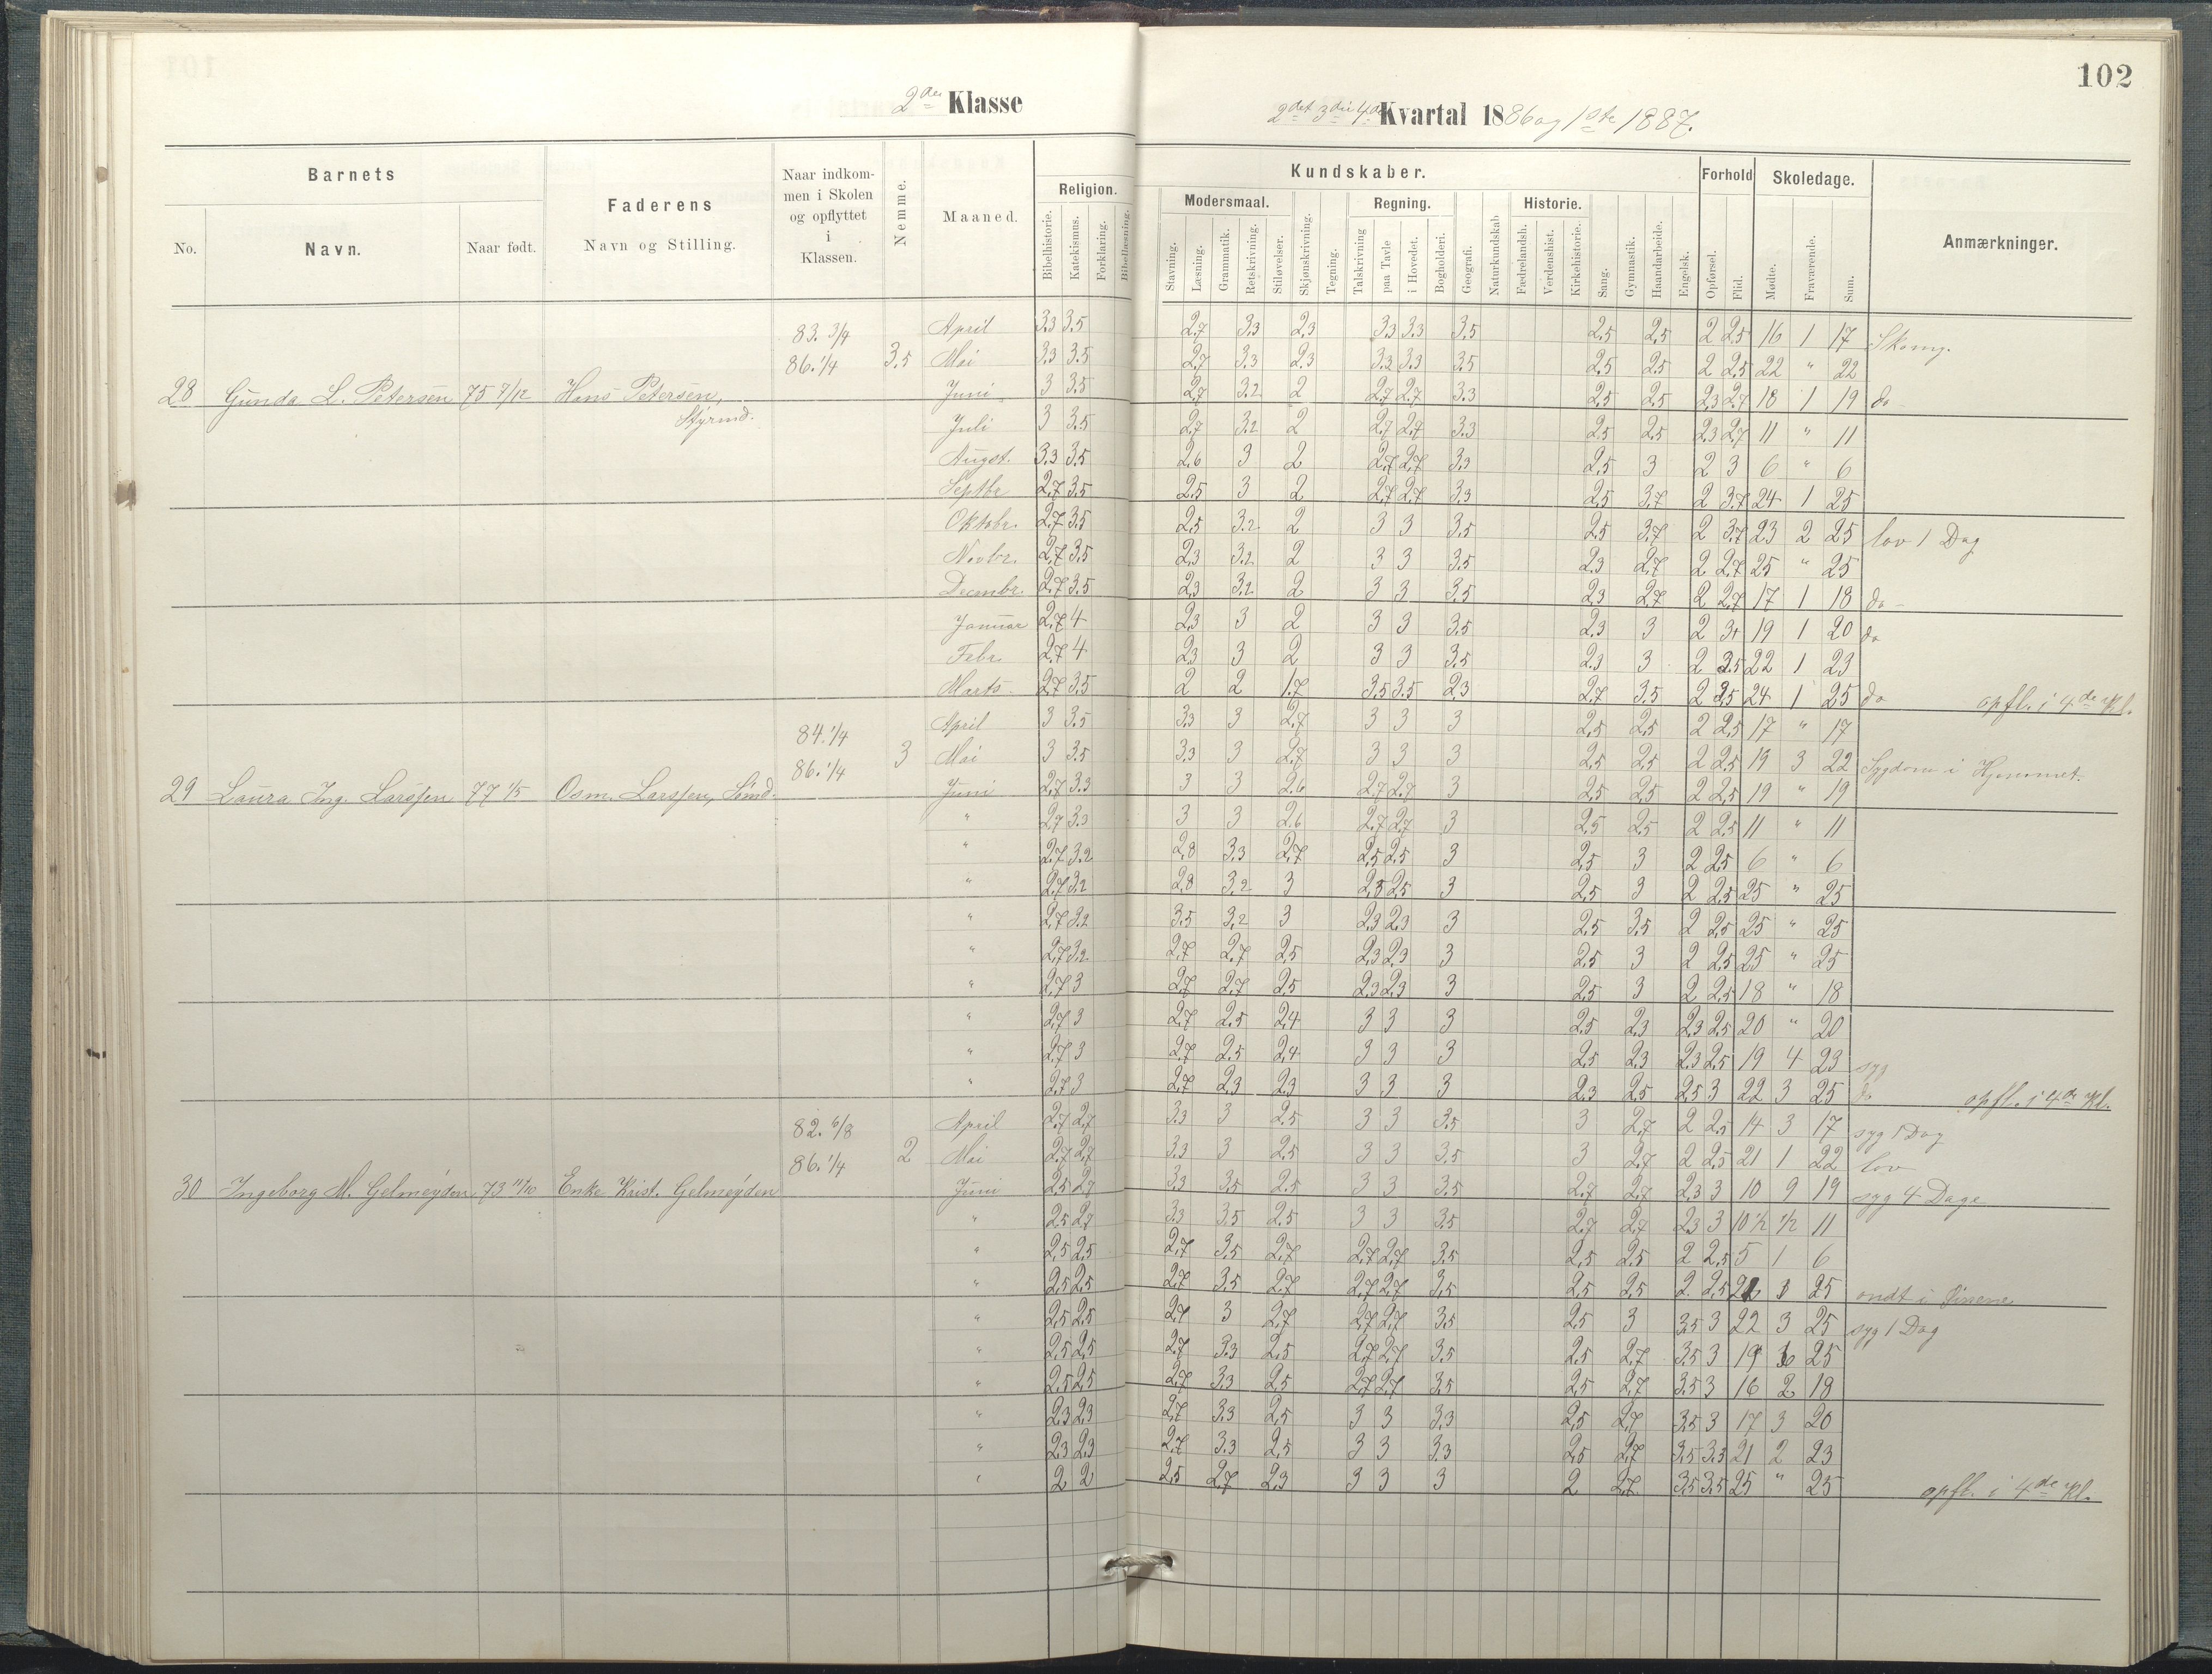 102
2den Klasse
2det 3die 4de Kvartal 1886 og 1ste 1887.
Barnets
No.
Navn.
Naar født.
Faderens
Navn og Stilling.
Naar indkom-
men i Skolen
og opflyttet
i
Klassen.
Nemme.
Maaned.
Kundskaber.
Religion.
Bibelhistorie.
Katekismus.
Forklaring.
Bibellæsning.
Modersmaal.
Stavning.
Læsning.
Grammatik.
Retskrivning.
Stiløvelser.
Skjønskrivning.
Tegning.
Regning.
Talskrivning
paa Tavle
i Hovedet.
Bogholderi.
Geografi.
Naturkundskab
Historie.
Fædrelandsh.
Verdenshist.
Kirkehistorie.
Sang.
Gymnastik.
Haandarbeide.
Engelsk.
Forhold
Opførsel.
Flid.
Skoledage.
Mødte.
Fraværende.
Sum.
Anmærkninger.
83. 3/4 April 3.3 3.5 2,7 3.3 2,3 3.3 3.3 3.5 2,5 2,5 2 2,5 16 1 17
86. 1/4 3,5 Mai 3,3 3.5 2,7 3.3 2,3 3.3 3.3 3.5 2,5 2,5 2 2,5 22 " 22
28 Gunda L. Petersen 75 7/12 Hans Petersen, Juni 3 3.5 2,7 3.2 2 2,7 2,7 3.3 2,5 2,5 2,3 2,7 18 1 19 do
Styrmd. Juli 3 3.5 2,7 3.2 2 2,7 2,7 3.3 2,5 2,5 2,3 2,7 11 " 11
Augst. 3.3 3.5 2,6 3 2 2,7 2,7 3.3 2,5 3 2 3 6 " 6
Septbr 2,7 3.5 2,5 3 2 2,7 2,7 3.3 2,5 3,7 2 3,7 24 1 25
Oktobr. 2,7 3.5 2,5 3.2 2 3 3 3.5 2,5 3,7 2 3,7 23 2 25 lov 1 Dag
Novbr. 2,7 3,5 2,3 3.2 2 3 3 3.5 2,3 2,7 2 2,7 25 " 25
Decembr. 2,7 3.5 2,3 3.2 2 3 3 3.5 2,3 2,7 2 2,7 17 1 18 do
Januar 2,7 4 2,3 3 2 3 3 3.5 2,3 3 2 3+ 19 1 20 do
Febr. 2,7 4 2,3 3 2 3 3 3.5 2,3 3 2 3.5 22 1 23
Marts 2,7 3.5 2 2 1.7 3.5 3.5 2,3 2,7 3.5 2 3,5 24 1 25 do opfl. i 4de Kl.
84. 1/4 April 3 3.5 3.3 3 2,7 3 3 3 2,5 2,5 2 2,5 17 " 17
86. 1/4 3 Mai 3 3.5 3.3 3 2,7 3 3 3 2,5 2,5 2 2,5 19 3 22 Sygdom i Hjemmet.
29 Laura Ing. Larssen 77 1/5 Osm. Larssen, Sømd. Juni 2,7 3.3 3 3 2.6 2,7 2,7 3 2,5 2,5 2 2,5 19 " 19
" 2,7 3.3 3 3 2.6 2,7 2,7 3 2,5 2,5 2 2,5 11 " 11
" 2,7 3.2 2,8 3.3 2,7 2,5 2,5 3 2,5 3 2 2,5 6 " 6
" 2,7 3.2 2,8 3.2 3 2,5 2,5 3 2,5 3 2 2,5 25 " 25
" 2,7 3.2 3.5 3,2 3 2,3 2,3 3 2,5 3,5 2 2,5 25 " 25
" 2,7 3.2 2,7 2,7 2,5 2,3 2,3 3 2,5 3 2 2,5 25 " 25
" 2,7 3 2,7 2,7 2,5 2,3 2,3 3 2,5 3 2 2,5 18 " 18
" 2,7 3 2,7 2,5 2,4 3 3 3 2,5 2,3 2,3 2,5 20 " 20
" 2,7 3 2,7 2,5 2,4 3 3 3 2,5 2,3 2,3 2,5 19 4 23 syg
" 2,7 3 2,7 2,3 2,3 3 3 3 2,3 2,5 2,5 3 22 3 25 do opfl. i 4de Kl.
82. 6/8 April 2,7 2,7 3.3 3 2,5 3 3 3.5 3 2,7 2 2,5 14 3 17 syg 1 Dag
86. 1/4 2 Mai 2,7 2,7 3.3 3 2,5 3 3 3.5 3 2,7 2 2,5 21 1 22 lov
30 Ingeborg M. Gelmeyden 73 11/10 Enke Krist. Gelmeyden Juni 2,5 2,7 3.3 3.5 2,5 3 3 3.5 2,7 2,7 2,3 3 10 9 19 syg 4 Dage
" 2,5 2,7 3.3 3.5 2,5 3 3 3.5 2,7 2,7 2,3 3 10 1/2 1/2 11
" 2,5 2,5 2,7 3.5 2,7 2,7 2,7 3.5 2,5 2,5 2 2,5 5 1 6
" 2,5 2,5 2,7 3.5 2,7 2,7 2,7 3,5 2,5 2,5 2 2,5 25 ondt i Øinene
" 2,5 2,5 2,7 3 2,7 2,7 2,7 3.5 2,5 3 3.5 3 22 3 25 syg 1 Dag
" 2,5 2,5 2,7 3.3 2,5 2,7 2,7 3.5 2,5 2,7 3.5 3 19 6 25
" 2,5 2,5 2,7 3.3 2,5 2,7 2,7 3.5 2,5 2,7 3.5 3 16 2 18
" 2,3 2,3 2,7 3.3 2,5 3 3 3.3 2,5 2,7 3.5 3 17 3 20
" 2,3 2,3 2,7 3.3 2,5 3 3 3.3 2,5 2,7 3.5 3.3 21 2 23
" 2 2 2,5 2,7 2,3 3 3 3 2 2,7 3.5 3.5 25 " 25 opfl. i 4de Kl.